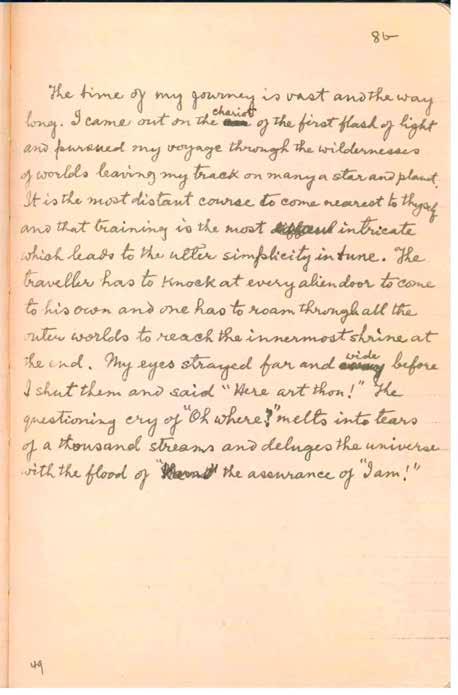 86
The time of my journey is vast and the way
long. I came out on the chariot of the first flash of light
and pursued my voyage through the wildernesses
of worlds leaving my track on many a star and planet.
It is the most distant course to come nearest to thyself
and that training is the most intricate
which leads to the utter simplicity in tune. The
traveller has to knock at every alien door to come
to his own and one has to roam through all the
outer worlds to reach the innermost shrine at
the end. My eyes strayed far and wide before
I shut them and said "Here art thou!" The
questioning cry of "Oh where?" melts into tears
of a thousand streams and deluges the universe
with the flood of the assurance of "I am!"
49